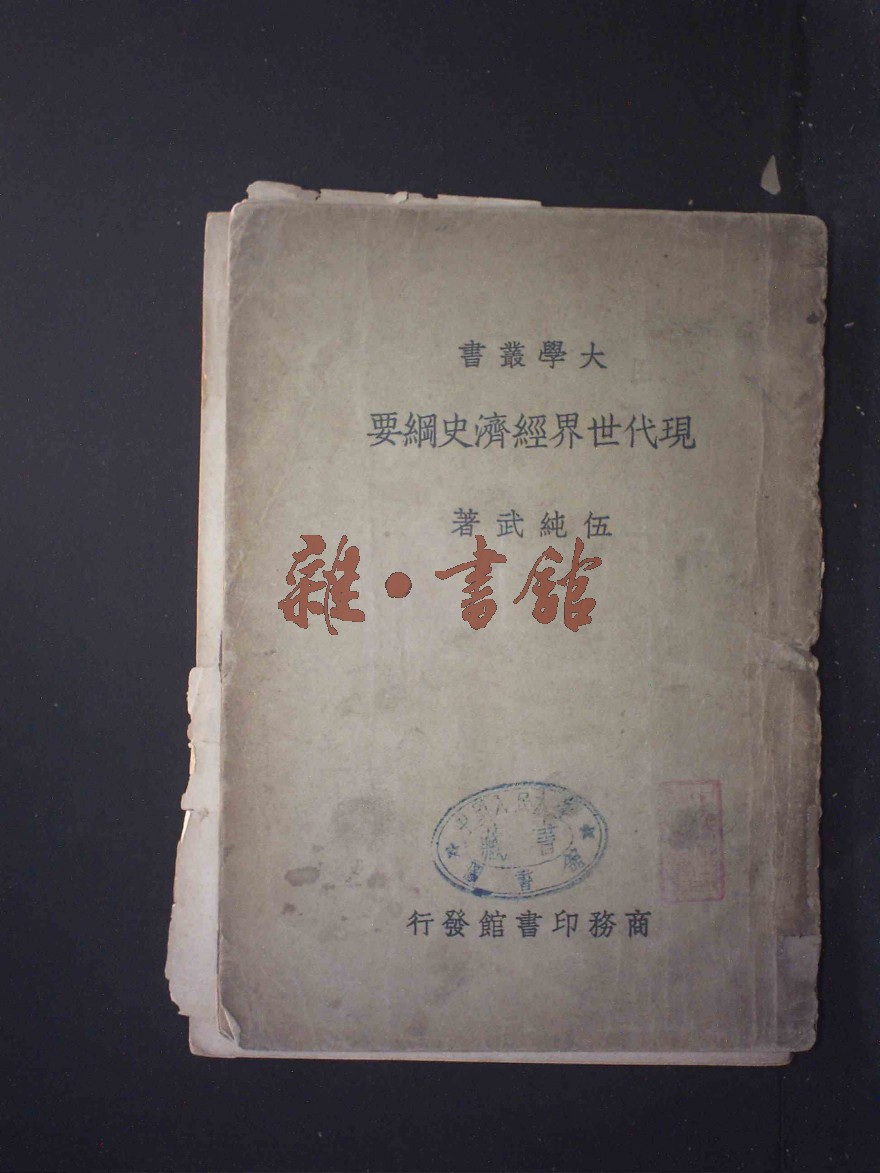 大學叢書
現代世界經濟史綱要
伍純武著
雜·書館
中國人民大學
藏書
圖書館
商務印書館發行